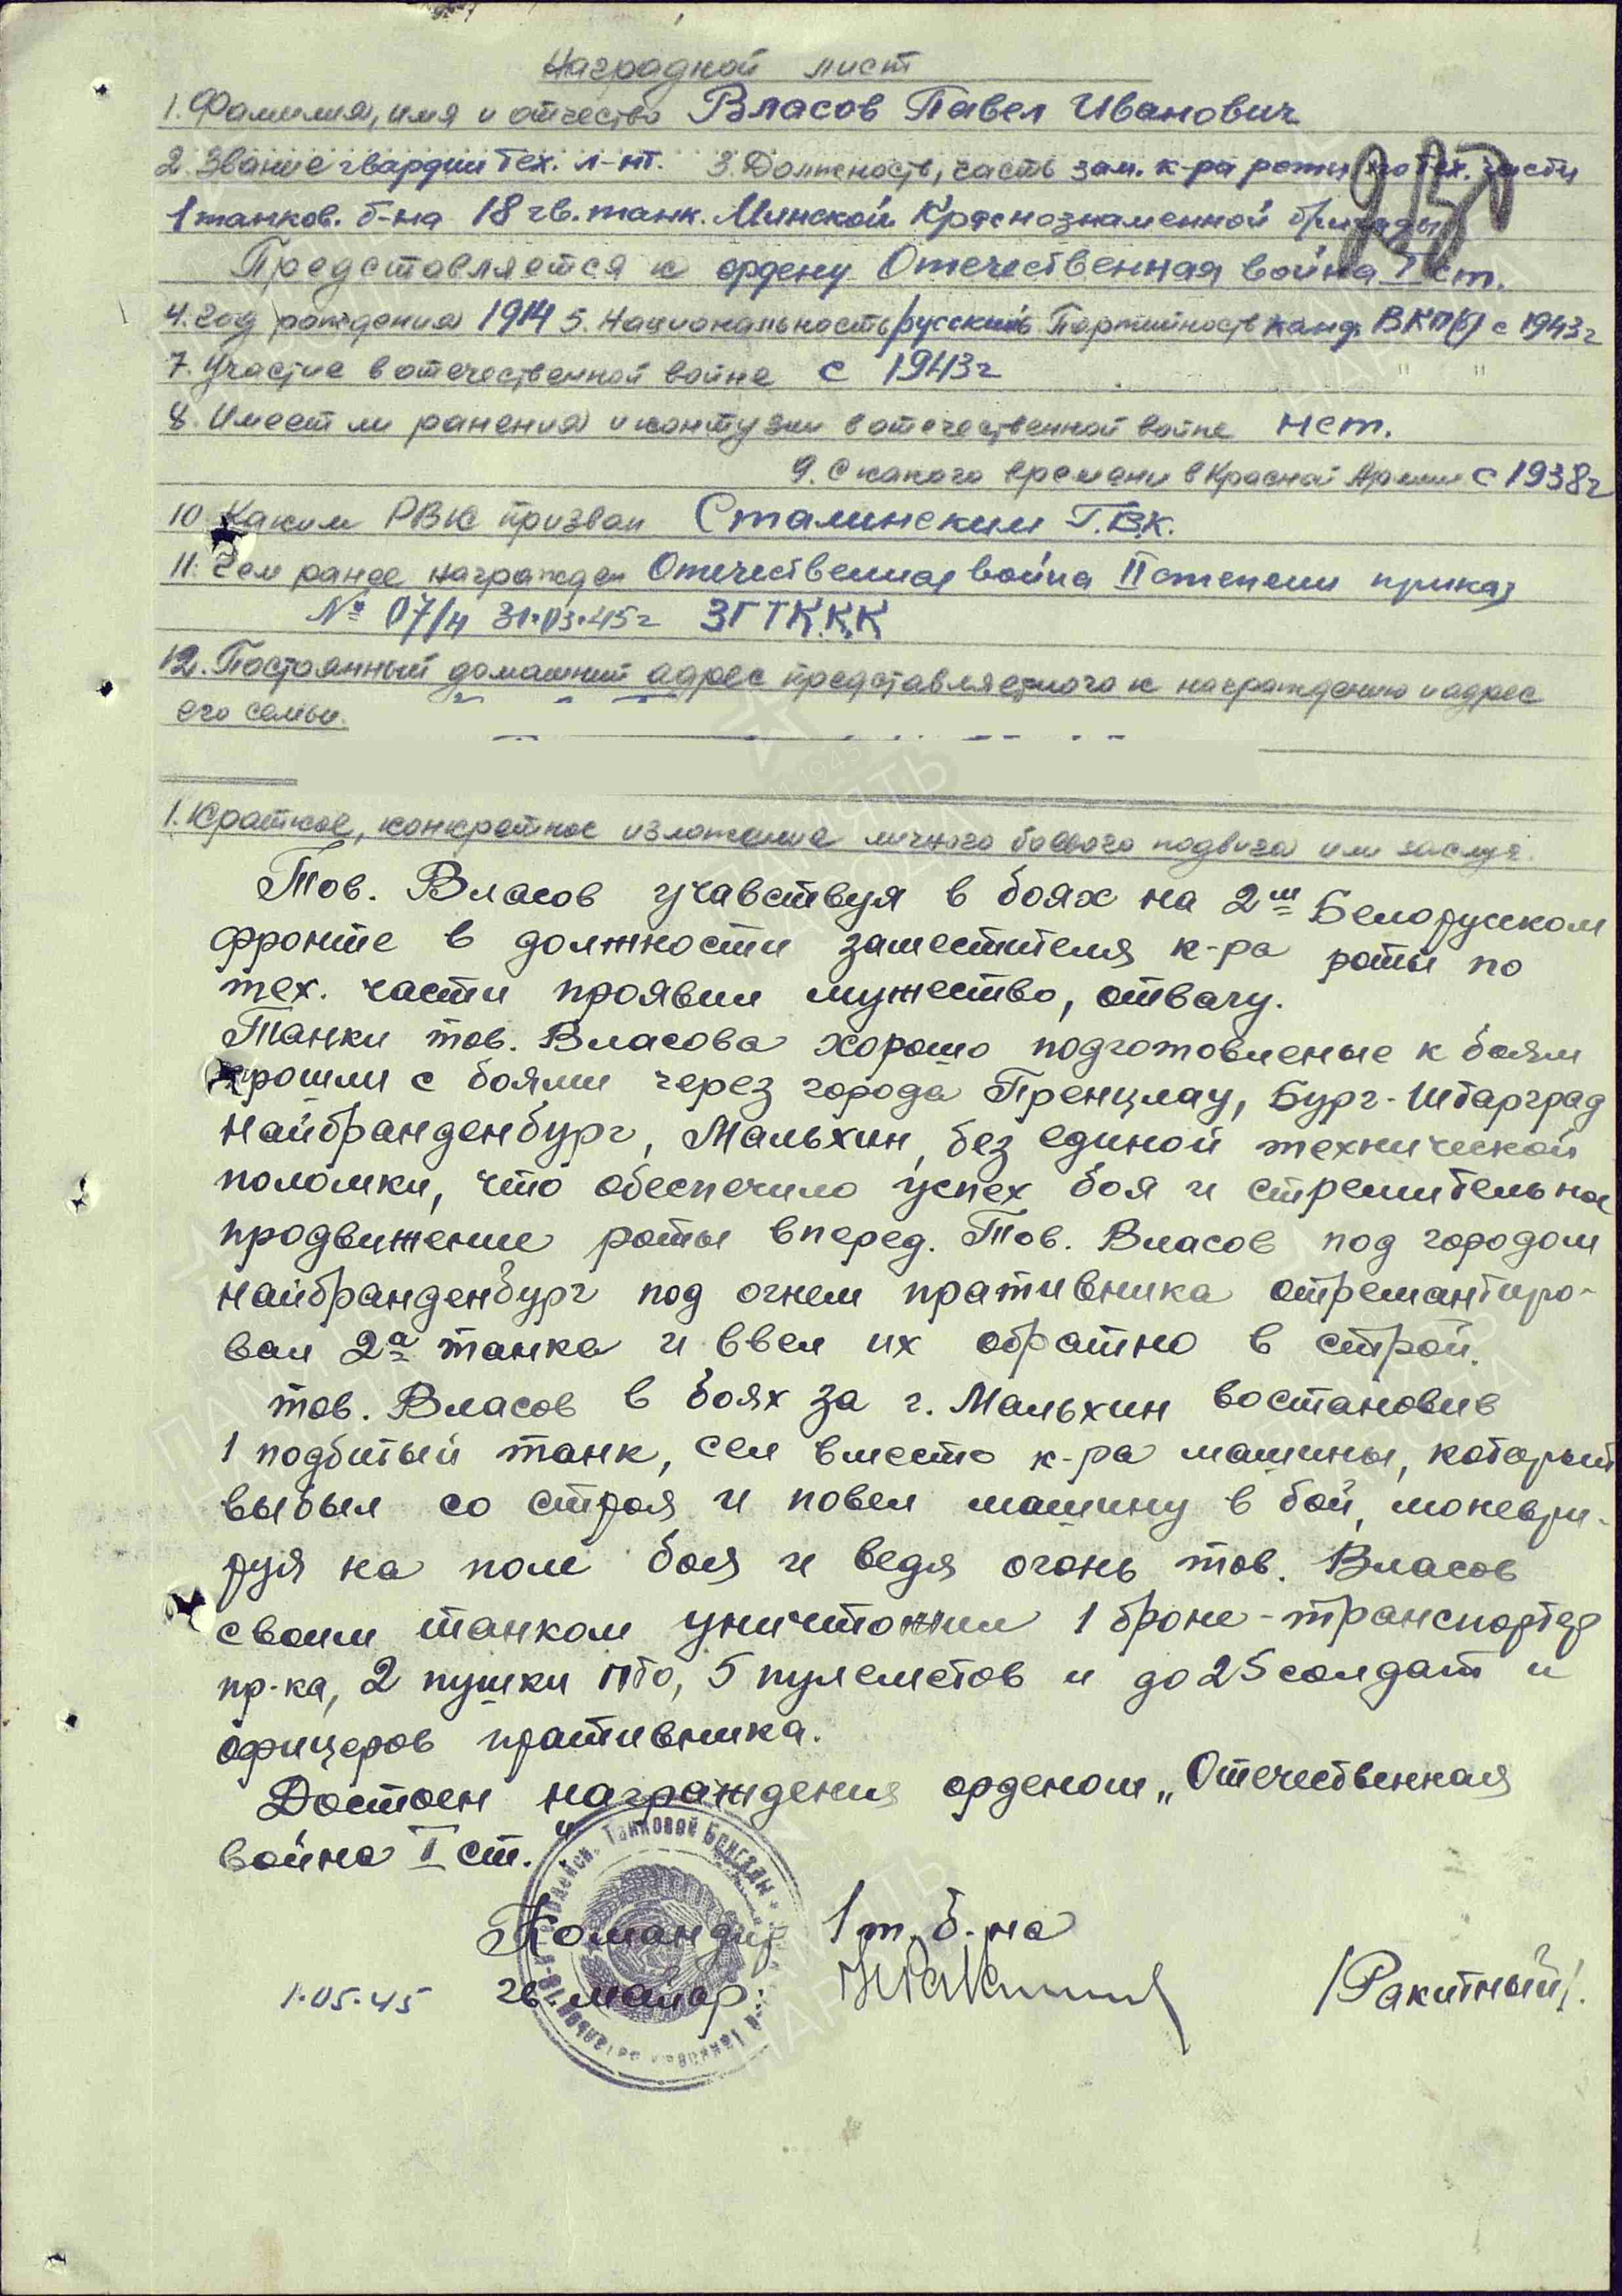 Наградной лист
1. Фамилия, имя и отчество Власов Павел Иванович
2. Звание гвардии тех. л-нт. 3. Должность, часть зам. к-ра роты по тех. части
1 танков. б-на 18 гв. танк. Минской Краснознаменной бригады
Представляется к ордену Отечественная война I ст.
4. Год рождения 1914 5. Национальность русский 6. Партийность канд. ВКП(б) с 1943г
7. Участие в отечественной войне с 1943г " "
8. Имеет ли ранения и контузии в отечественной войне нет.
9. С какого времени в Красной Армии с 1938г
10. Каким РВК призван Сталинским Г.В.К.
11. Чем ранее награжден Отечественная война II степени приказ
№ 07/н 31.03.45г 3ГТККК
12. Постоянный домашний адрес представляемого к награждению и адрес
его семьи.
1. Краткое, конкретное изложение личного боевого подвига или заслуг.
Тов. Власов учавствуя в боях на 2м Белорусском
фронте в должности заместителя к-ра роты по
тех. части проявил мужество, отвагу.
Танки тов. Власова хорошо подготовленые к боям
прошли с боями через города Пренцлау, Бург-Штаргград
Найбранденбург, Мальхин, без единой технической
поломки, что обеспечило успех боя и стремительное
продвижение роты вперед. Тов. Власов под городом
Найбранденбург под огнем пративника отремантиро-
вал 2а танка и ввел их обратно в строй.
тов. Власов в боях за г. Мальхин востановив
1 подбитый танк, сел вместо к-ра машины, который
выбыл со строя и повел машину в бой, моневри-
руя на поле боя и ведя огонь тов. Власов
своим танком уничтожил 1 броне-транспортер
пр-ка, 2 пушки ПТО, 5 пулеметов и до 25 солдат и
офицеров пративника.
Достоен награждения орденом „Отечественная
война I ст."
Командир 1 т. б-на
1.05.45 гв майор: /Ракитный/.
Танковой Бригады